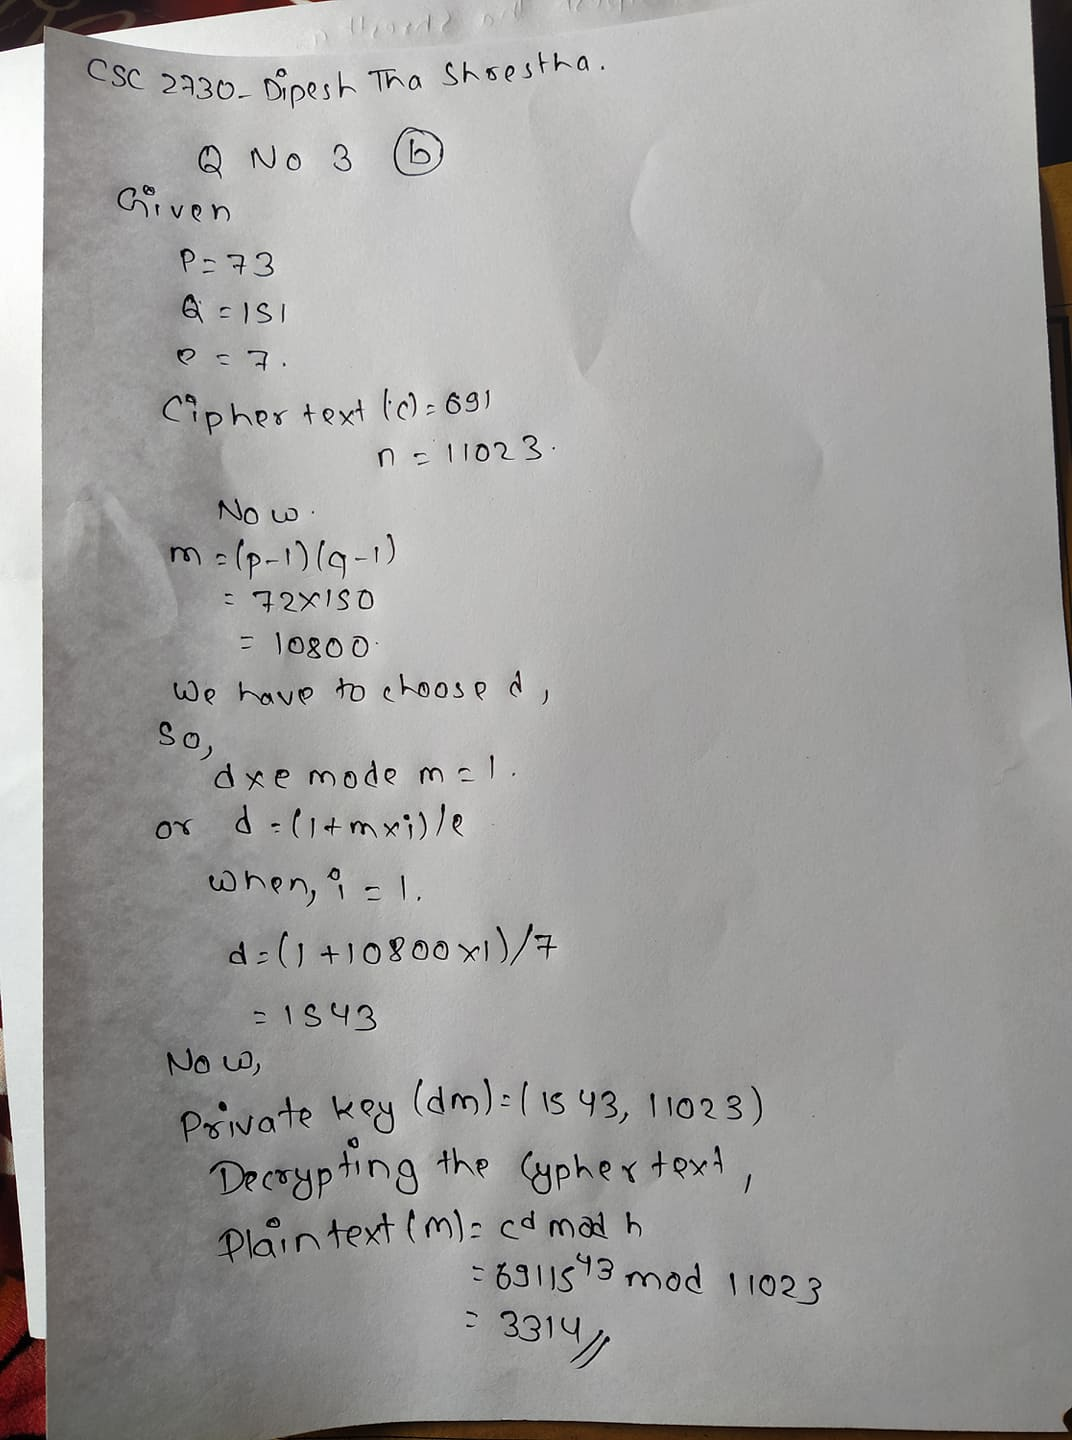 CSC 2730- Dipesh Tha Shrestha.
Q No 3 (b)
Given
P=73
Q=151
e=7.
Cipher text (c)=691
n=11023.
Now.
m=(p-1)(q-1)
= 72x150
= 10800.
We have to choose d,
So,
dxe mode m=1.
or d=(1+mxi)/e
when, i=1.
d=(1+10800x1)/7
=1543
Now,
Private key (dm)=(1543, 11023)
Decrypting the Cypher text,
Plain text (m)= cd mod n
=691 1543 mod 11023
= 3314//